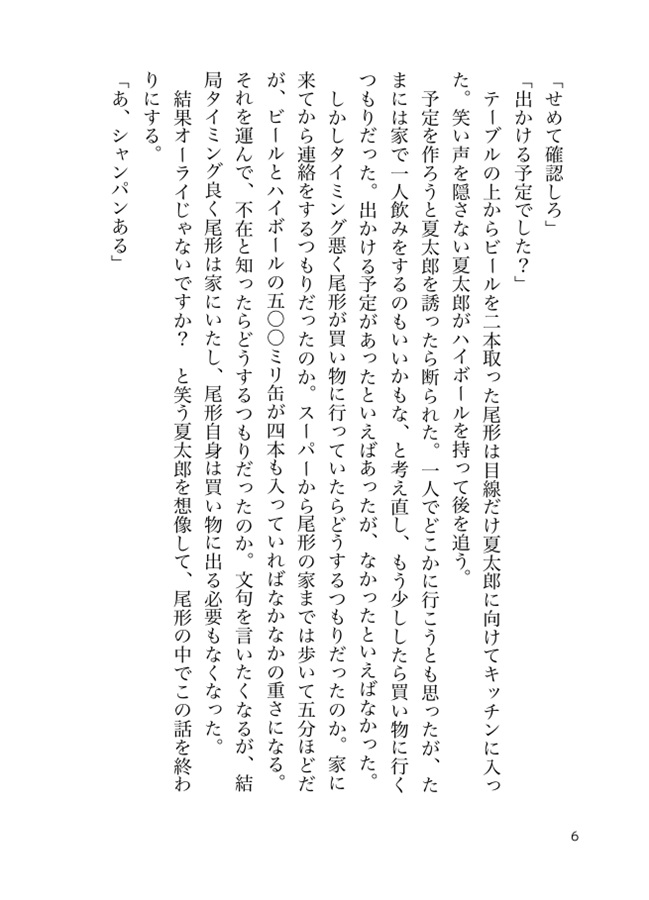 「せめて確認しろ」
「出かける予定でした？」
　テーブルの上からビールを二本取った尾形は目線だけ夏太郎に向けてキッチンに入っ
た。笑い声を隠さない夏太郎がハイボールを持って後を追う。
　予定を作ろうと夏太郎を誘ったら断られた。一人でどこかに行こうとも思ったが、た
まには家で一人飲みをするのもいいかもな、と考え直し、もう少ししたら買い物に行く
つもりだった。出かける予定があったといえばあったが、なかったといえばなかった。
　しかしタイミング悪く尾形が買い物に行っていたらどうするつもりだったのか。家に
来てから連絡をするつもりだったのか。スーパーから尾形の家までは歩いて五分ほどだ
が、ビールとハイボールの五〇〇ミリ缶が四本も入っていればなかなかの重さになる。
それを運んで、不在と知ったらどうするつもりだったのか。文句を言いたくなるが、結
局タイミング良く尾形は家にいたし、尾形自身は買い物に出る必要もなくなった。
　結果オーライじゃないですか？　と笑う夏太郎を想像して、尾形の中でこの話を終わ
りにする。
「あ、シャンパンある」
6